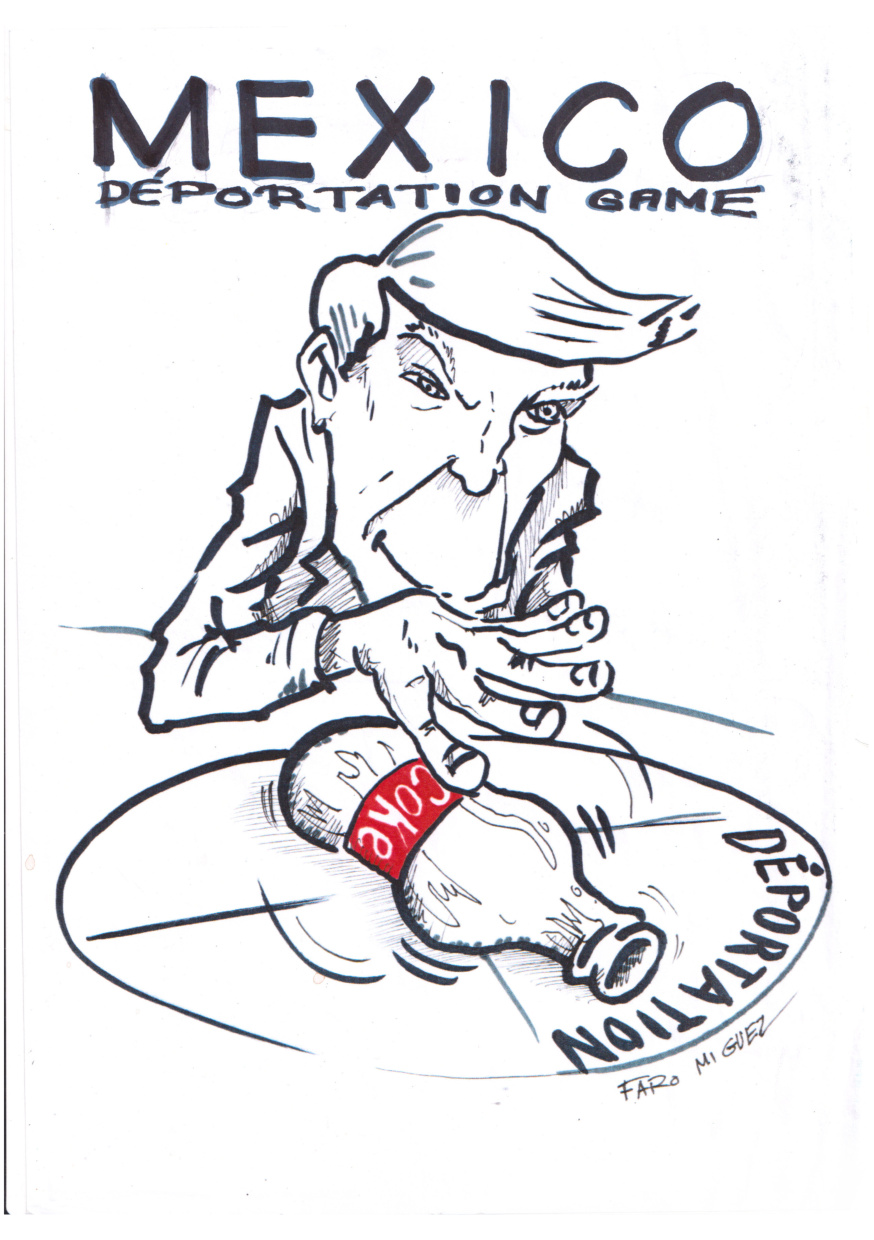 MEXICO
DÉPORTATION GAME
COKE
DÉPORTATION
FARO MIGUEZ